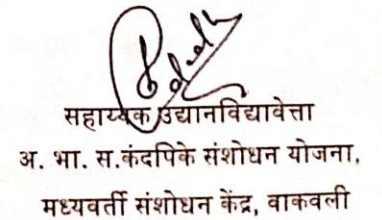 सहाय्यक उद्यानविद्यावेत्ता
अ. भा. स.कंदपिके संशोधन योजना,
मध्यवर्ती संशोधन केंद्र, वाकवली